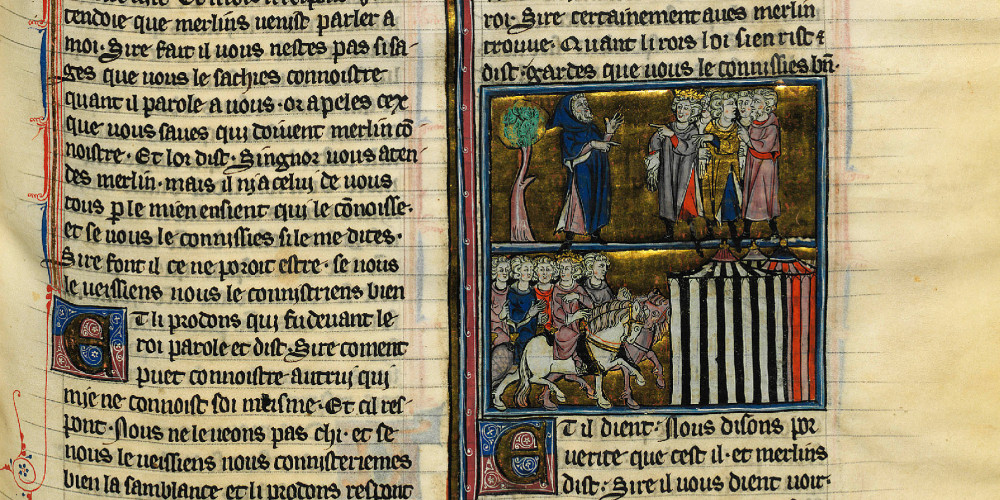 tendoie que merlins uenist parler a
moi · Sire fait il uous nestes pas si sa-
ges que uous le sachies connoistre
quant il parole a uous · or apeles cex
que uous saues qui doiuent merlin cō
noistre · Et lor dist · Singnor uous aten-
des merlin · mais il nia celui de uous
tous p le mien ensient qui le cōnoisse ·
et se uous le connissies si le me dites ·
Sire font il ce ne poroit estre · se uous
le ueissiens nous le connistriens bien
Et li prodons qui fu deuant le
roi parole et dist · Sire coment
puet connoistre autrui qui
mie ne connoist soi meisme · Et cil res-
pont · Nous ne le ueons pas chi · et se
nous le ueissiens nous connisteriemes
bien la samblance et li prodons respont
roi · Sire certainement aues merlin
trouue · Quant li rois loi si en rist ⁊
dist · gardes que uous le connissies bn̄ ·
Et il dient · Nous disons por
uerite que cest il · et merlins
dist · Sire il uous dient uoir ·